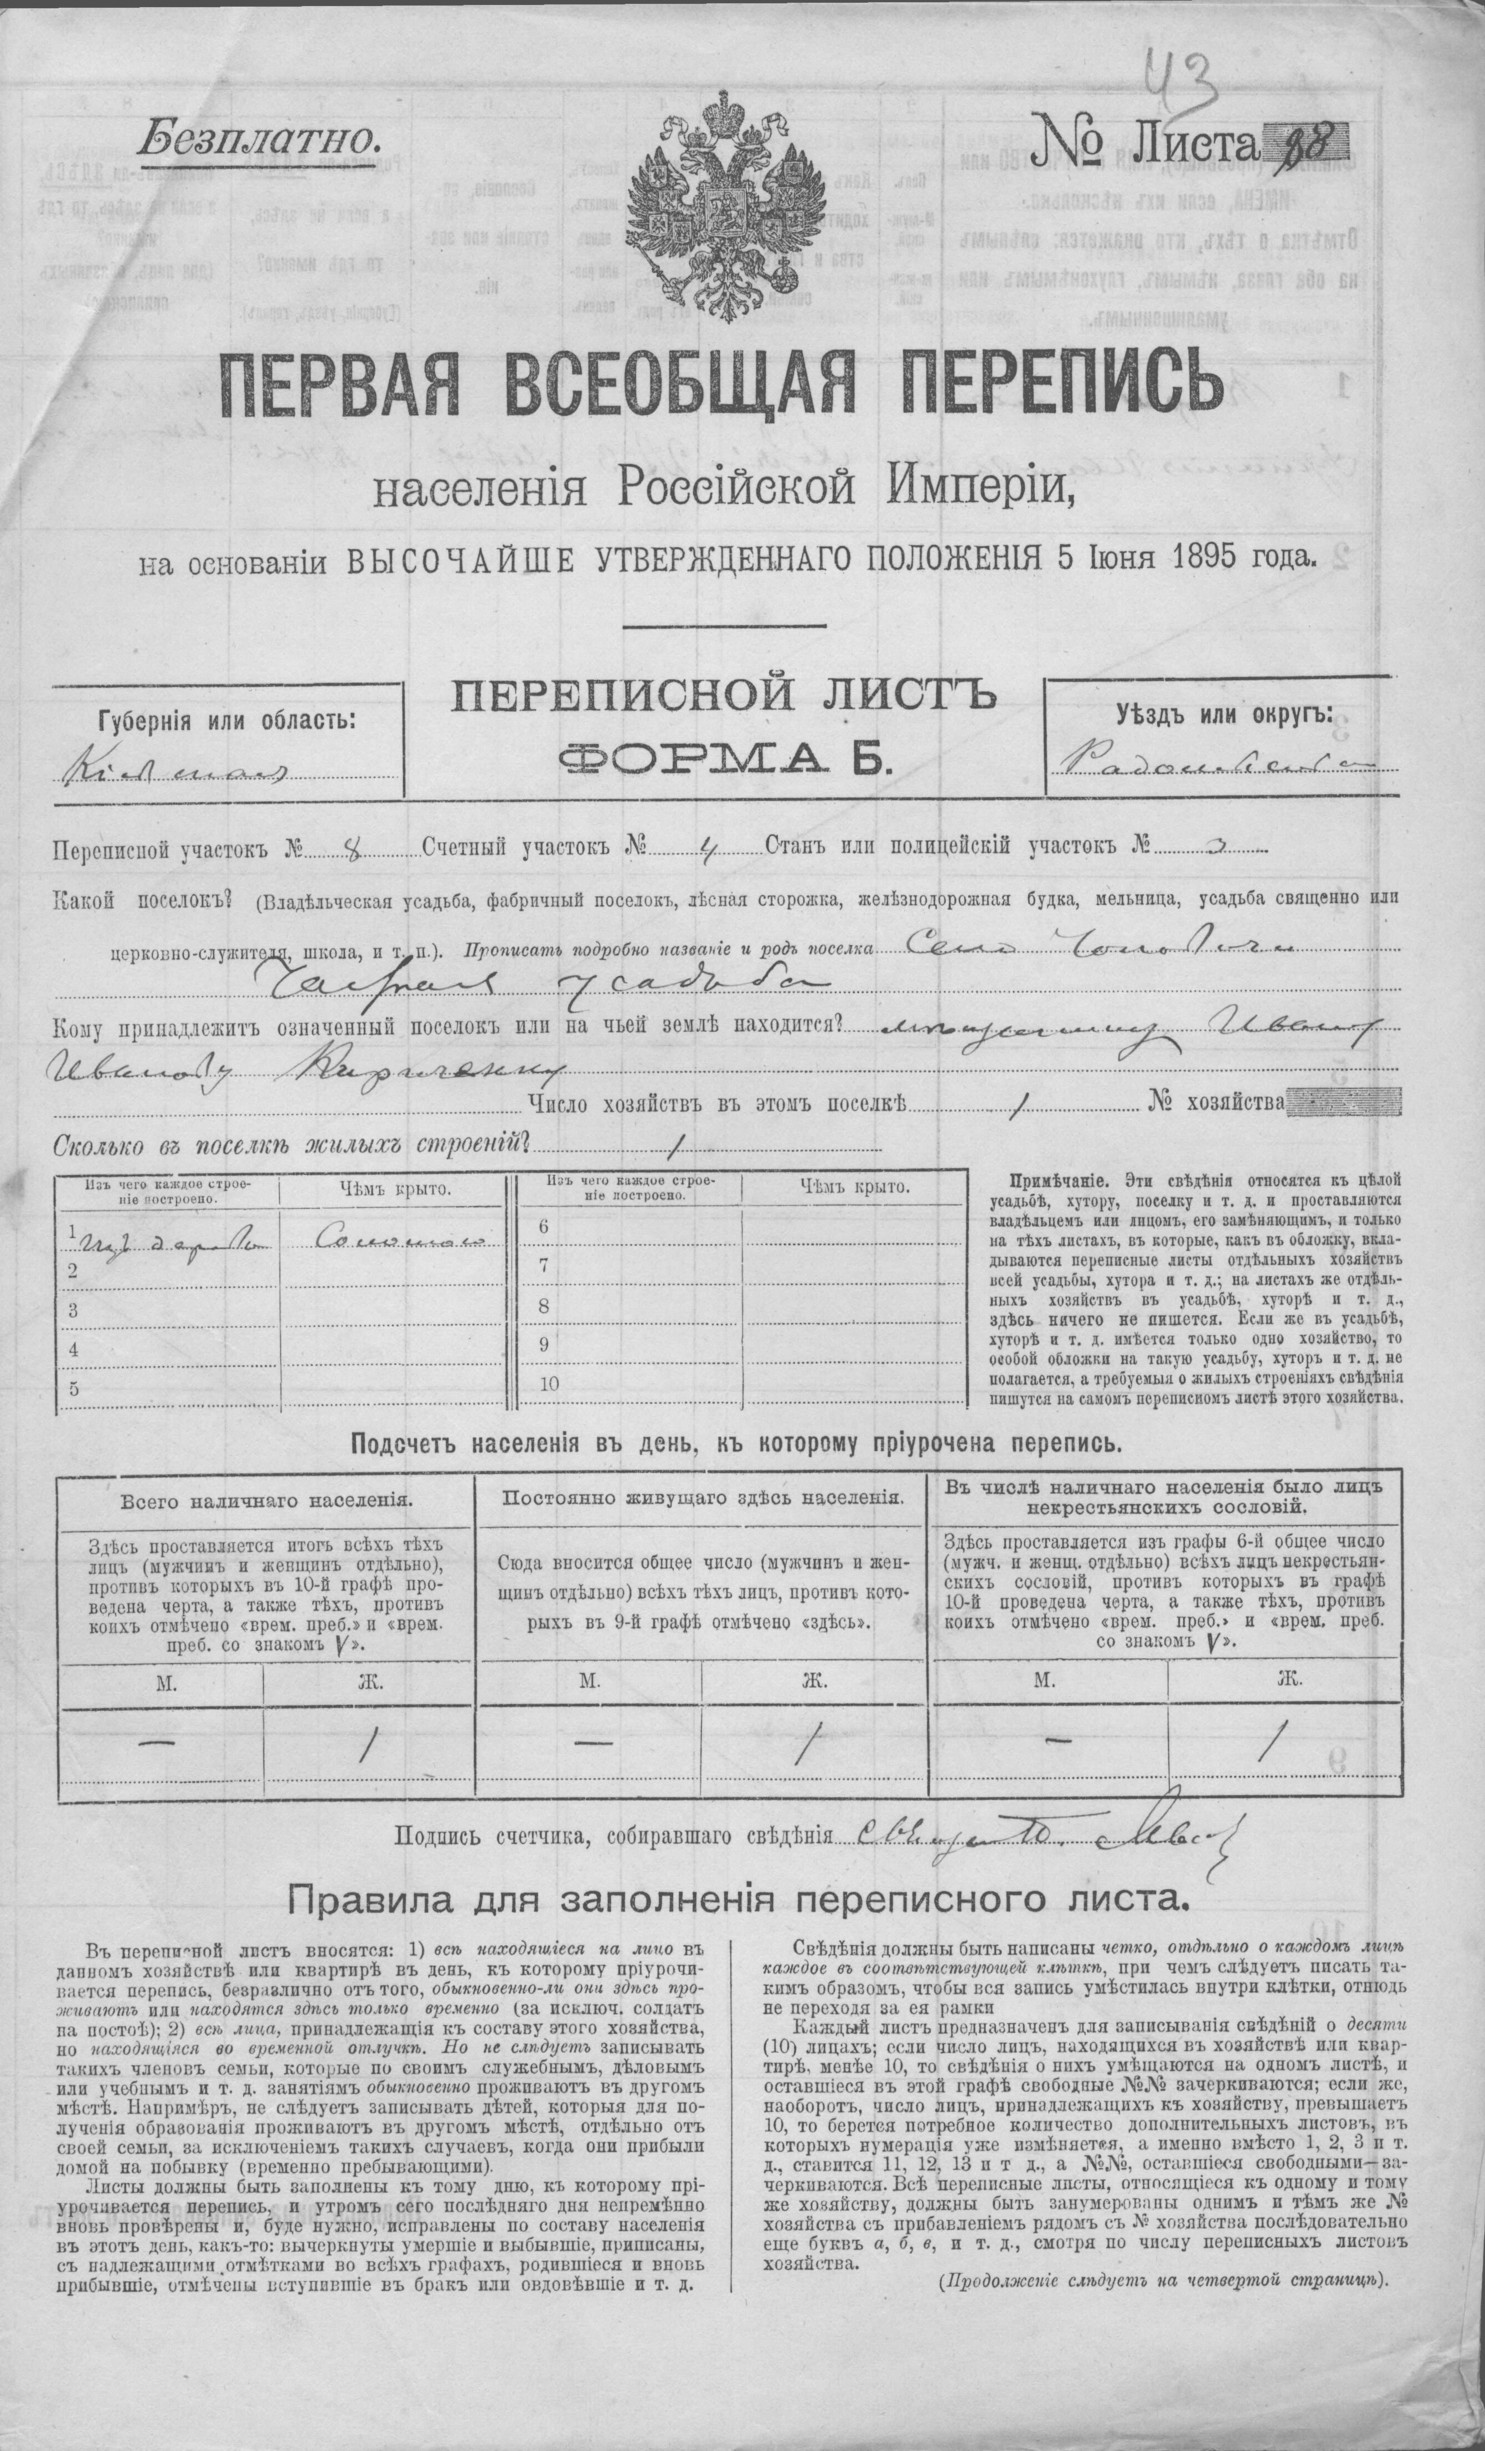 43
Безплатно.
№ Листа 88
ПЕРВАЯ ВСЕОБЩАЯ ПЕРЕПИСЬ
населенія Россійской Имперіи,
на основаніи ВЫСОЧАЙШЕ УТВЕРЖДЕННАГО ПОЛОЖЕНІЯ 5 Іюня 1895 года.
ПЕРЕПИСНОЙ ЛИСТЪ
ФОРМА Б.
Губернія или область:
Кіевская
Уѣздъ или округъ:
Радомысльскій
Переписной участокъ № 8 Счетный участокъ № 4 Станъ или полицейскій участокъ №
Какой поселокъ? (Владѣльческая усадьба, фабричный поселокъ, лѣсная сторожка, желѣзнодорожная будка, мельница, усадьба священно или
церковно-служителя, школа, и т. п.). Прописать подробно названіе и родъ поселка Село Чоповичи
Частная усадьба
Кому принадлежитъ означенный поселокъ или на чьей землѣ находится? мѣщанину Ивану
Иванову Кириченку
Число хозяйствъ въ этомъ поселкѣ 1 № хозяйства
Сколько въ поселкѣ жилыхъ строеній? 1
Изъ чего каждое строе-
ніе построено.
Чѣмъ крыто.
Изъ чего каждое строе-
ніе построено.
Чѣмъ крыто.
1 Изъ дерева Соломою
2
3
4
5
6
7
8
9
10
Примѣчаніе. Эти свѣдѣнія относятся къ цѣлой
усадьбѣ, хутору, поселку и т. д. и проставляются
владѣльцемъ или лицомъ, его замѣняющимъ, и только
на тѣхъ листахъ, въ которые, какъ въ обложку, вкла-
дываются переписные листы отдѣльныхъ хозяйствъ
всей усадьбы, хутора и т. д.; на листахъ же отдѣль-
ныхъ хозяйствъ въ усадьбѣ, хуторѣ и т. д.,
здѣсь ничего не пишется. Если же въ усадьбѣ,
хуторѣ и т. д. имѣется только одно хозяйство, то
особой обложки на такую усадьбу, хуторъ и т. д. не
полагается, а требуемыя о жилыхъ строеніяхъ свѣдѣнія
пишутся на самомъ переписномъ листѣ этого хозяйства.
Подсчетъ населенія въ день, къ которому пріурочена перепись.
Всего наличнаго населенія.
Здѣсь проставляется итогъ всѣхъ тѣхъ
лицъ (мужчинъ и женщинъ отдѣльно),
противъ которыхъ въ 10-й графѣ про-
ведена черта, а также тѣхъ, противъ
коихъ отмѣчено «врем. преб.» и «врем.
преб. со знакомъ V».
М. Ж.
— 1
Постоянно живущаго здѣсь населенія.
Сюда вносится общее число (мужчинъ и жен-
щинъ отдѣльно) всѣхъ тѣхъ лицъ, противъ кото-
рыхъ въ 9-й графѣ отмѣчено «здѣсь».
М. Ж.
— 1
Въ числѣ наличнаго населенія было лицъ
некрестьянскихъ сословій.
Здѣсь проставляется изъ графы 6-й общее число
(мужч. и женщ. отдѣльно) всѣхъ лицъ некрестьян-
скихъ сословій, противъ которыхъ въ графѣ
10-й проведена черта, а также тѣхъ, противъ
коихъ отмѣчено «врем. преб.» и «врем. преб.
со знакомъ V».
М. Ж.
— 1
Подпись счетчика, собиравшаго свѣдѣнія
Правила для заполненія переписного листа.
Въ переписной листъ вносятся: 1) всѣ находящіеся на лицо въ
данномъ хозяйствѣ или квартирѣ въ день, къ которому пріурочи-
вается перепись, безразлично отъ того, обыкновенно-ли они здѣсь про-
живаютъ или находятся здѣсь только временно (за исключ. солдатъ
на постоѣ); 2) всѣ лица, принадлежащія къ составу этого хозяйства,
но находящіяся во временной отлучкѣ. Но не слѣдуетъ записывать
такихъ членовъ семьи, которые по своимъ служебнымъ, дѣловымъ
или учебнымъ и т. д. занятіямъ обыкновенно проживаютъ въ другомъ
мѣстѣ. Напримѣръ, не слѣдуетъ записывать дѣтей, которыя для по-
лученія образованія проживаютъ въ другомъ мѣстѣ, отдѣльно отъ
своей семьи, за исключеніемъ такихъ случаевъ, когда они прибыли
домой на побывку (временно пребывающими).
Листы должны быть заполнены къ тому дню, къ которому прі-
урочивается перепись, и утромъ сего послѣдняго дня непремѣнно
вновь провѣрены и, буде нужно, исправлены по составу населенія
въ этотъ день, какъ-то: вычеркнуты умершіе и выбывшіе, приписаны,
съ надлежащими отмѣтками во всѣхъ графахъ, родившіеся и вновь
прибывшіе, отмѣчены вступившіе въ бракъ или овдовѣвшіе и т. д.
Свѣдѣнія должны быть написаны четко, отдѣльно о каждомъ лицѣ
каждое въ соотвѣтствующей клѣткѣ, при чемъ слѣдуетъ писать та-
кимъ образомъ, чтобы вся запись умѣстилась внутри клѣтки, отнюдь
не переходя за ея рамки
Каждый листъ предназначенъ для записыванія свѣдѣній о десяти
(10) лицахъ; если число лицъ, находящихся въ хозяйствѣ или квар-
тирѣ, менѣе 10, то свѣдѣнія о нихъ умѣщаются на одномъ листѣ, и
оставшіеся въ этой графѣ свободные №№ зачеркиваются; если же,
наоборотъ, число лицъ, принадлежащихъ къ хозяйству, превышаетъ
10, то берется потребное количество дополнительныхъ листовъ, въ
которыхъ нумерація уже измѣняется, а именно вмѣсто 1, 2, 3 и т.
д., ставится 11, 12, 13 и т д., а №№, оставшіеся свободными—за-
черкиваются. Всѣ переписные листы, относящіеся къ одному и тому
же хозяйству, должны быть занумерованы однимъ и тѣмъ же №
хозяйства съ прибавленіемъ рядомъ съ № хозяйства послѣдовательно
еще буквъ а, б, в, и т. д., смотря по числу переписныхъ листовъ
хозяйства.
(Продолженіе слѣдуетъ на четвертой страницѣ).